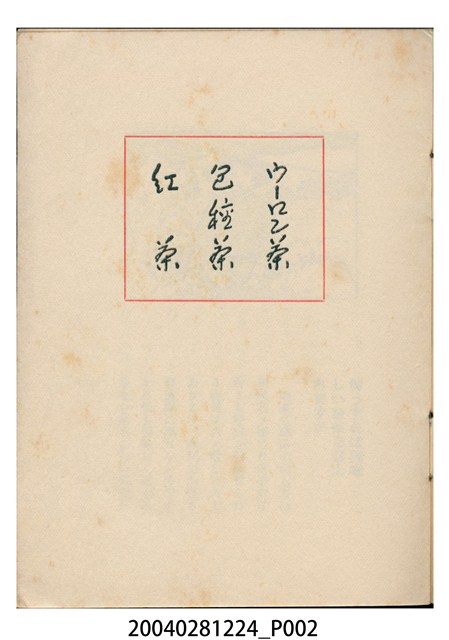 ウーロン茶
包種茶
紅茶
20040281224_P002